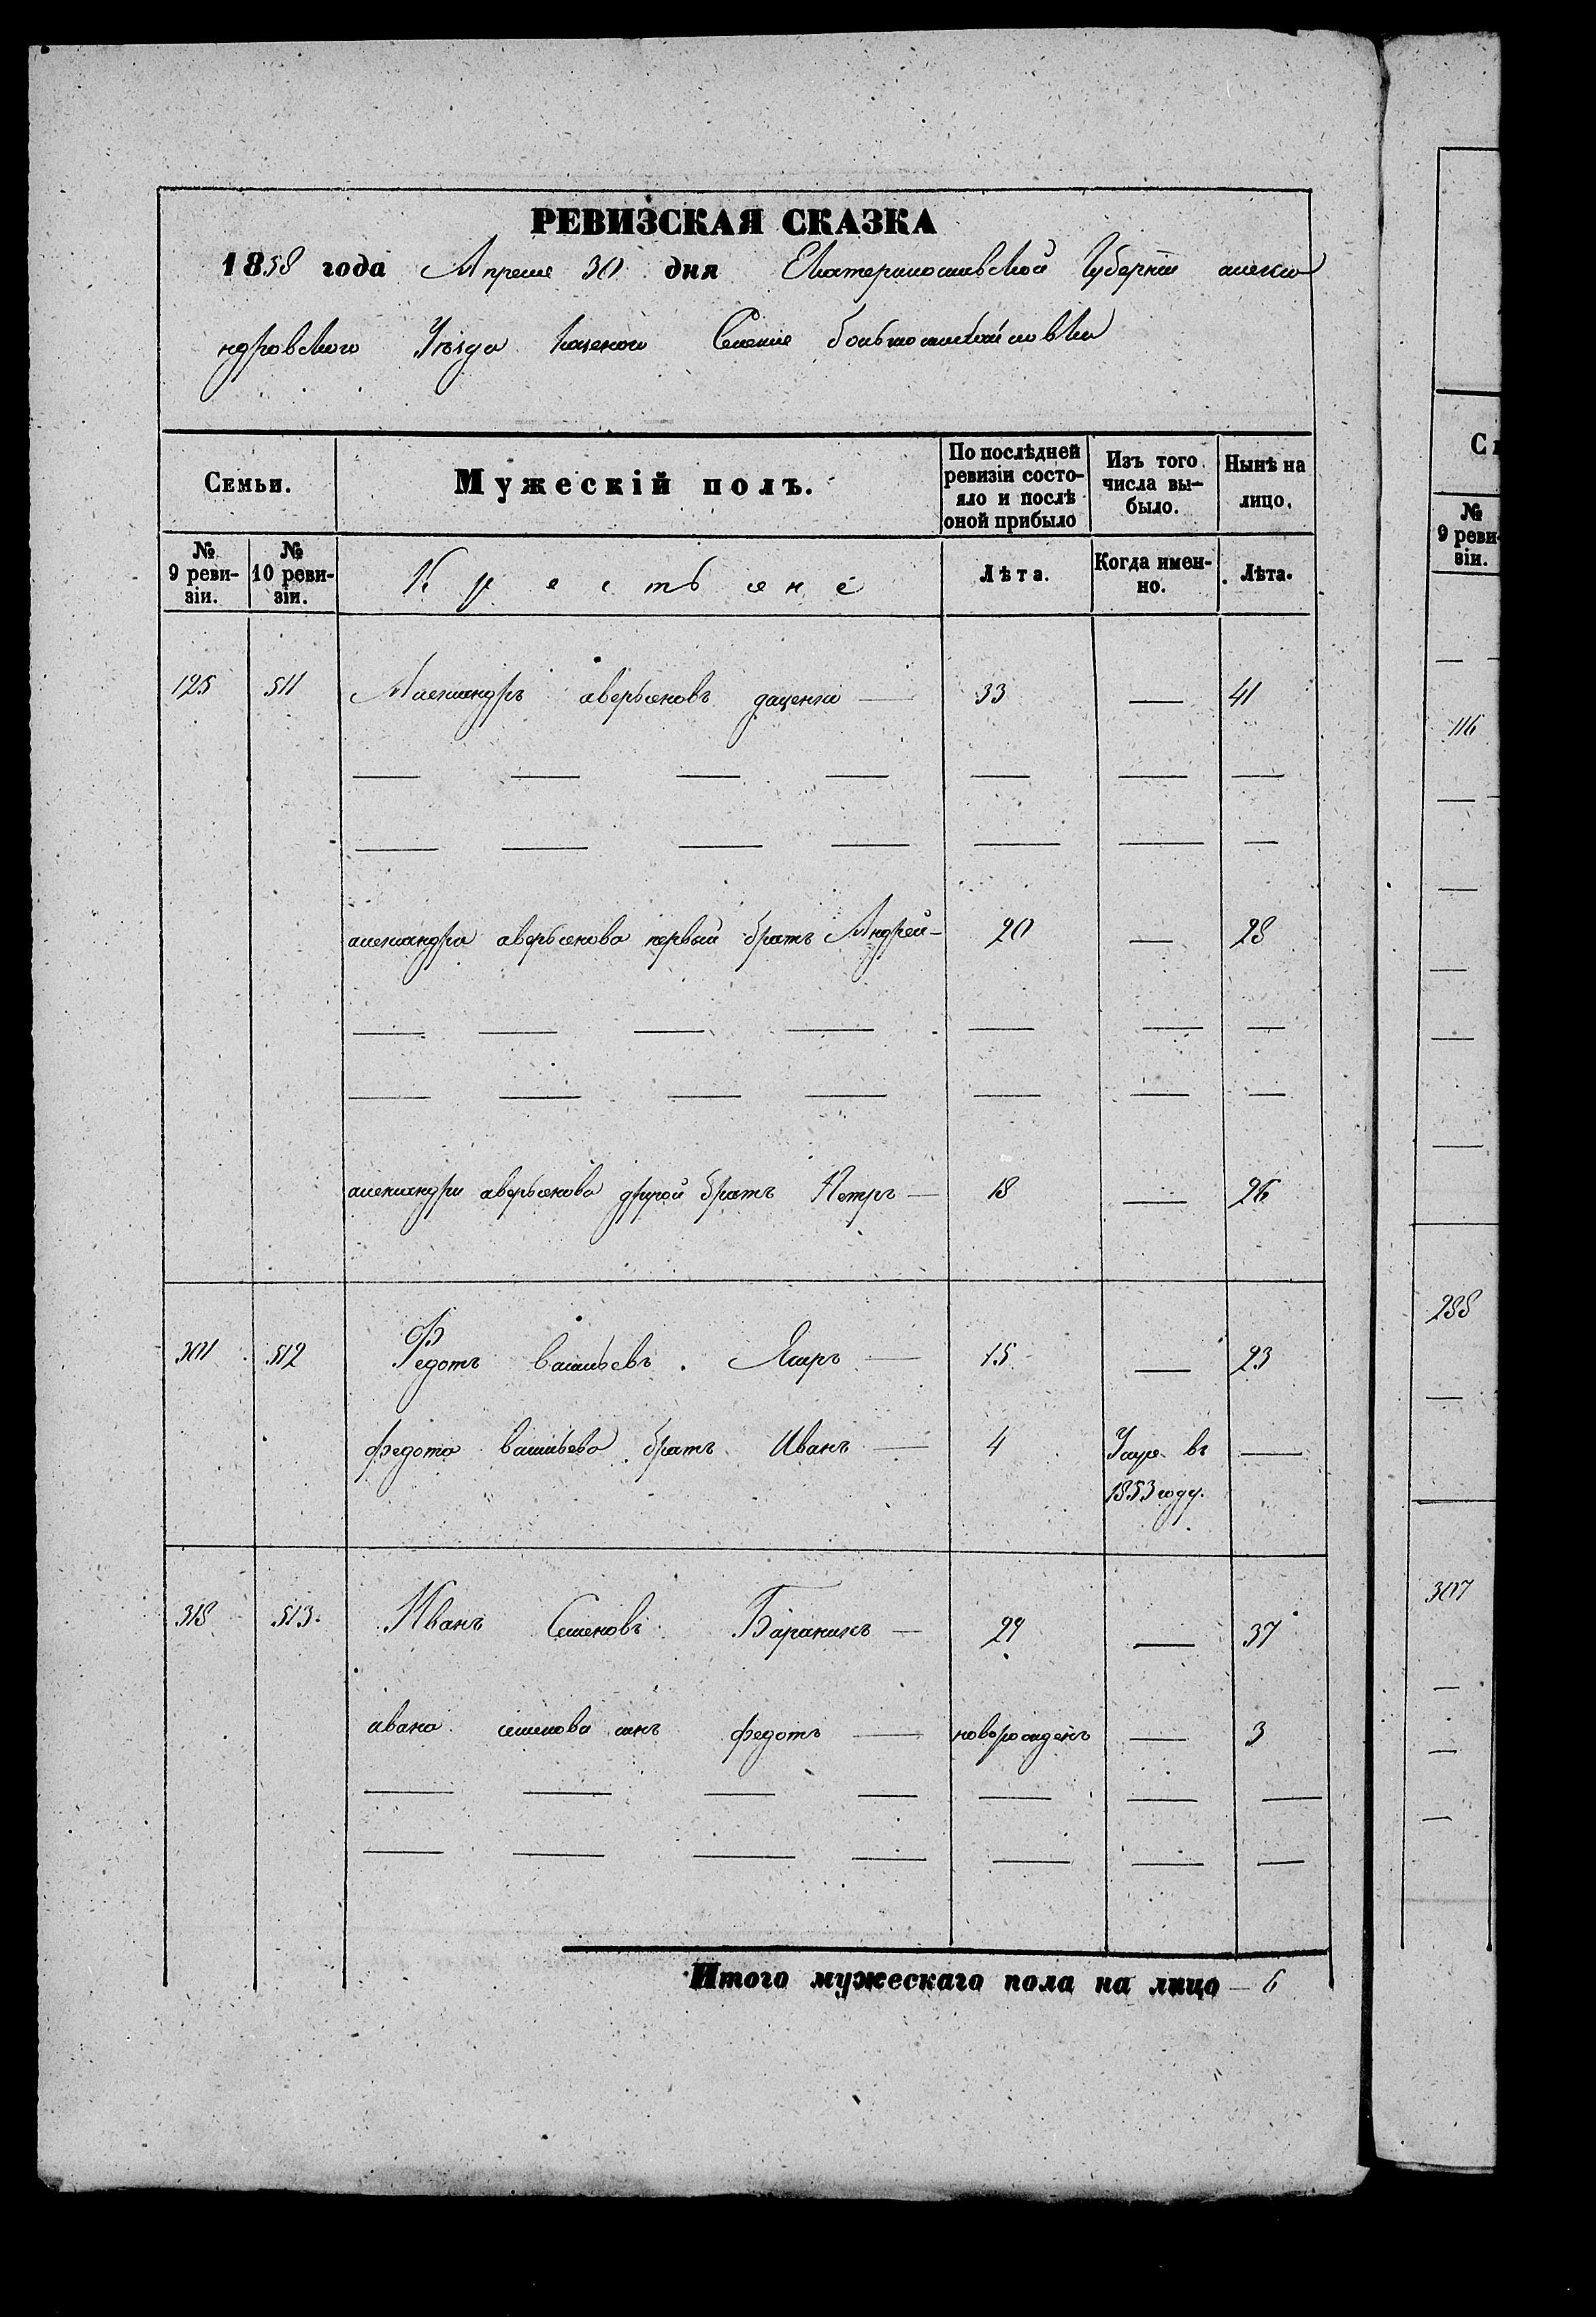 РЕВИЗСКАЯ СКАЗКА
1858 года Апреля 30 дня Екатеринославской Губернии алекса
ндровского Уезда Селение
Семьи. Мужескій полъ. По послѣдней ревизіи состояло и послѣ оной прибыло Изъ того числа выбыло. Нынѣ на лицо.
№ 9 ревизіи. № 10 ревизіи. Крестьяне Лѣта. Когда именно. Лѣта.
125 511 Александръ аверьяновъ даценко — 33 — 41
— — — — — — —
— — — — — — —
александра аверьянова первый братъ Андрей — 20 — 28
— — — — — — —
— — — — — — —
александра аверьянова другой братъ Петръ — 18 — 26
301 512 Федотъ васильевъ — 15 — 23
федота васильева братъ Иванъ — 4 Умре въ —
1853 году.
318 513. Иванъ Семеновъ Бараникъ — 29 — 37
ивана семенова сынъ федотъ — новорожденъ — 3
— — — — — — —
— — — — — — —
Итого мужескаго пола на лицо — 6
Се
№
9 реви-
зіи.
116
288
307